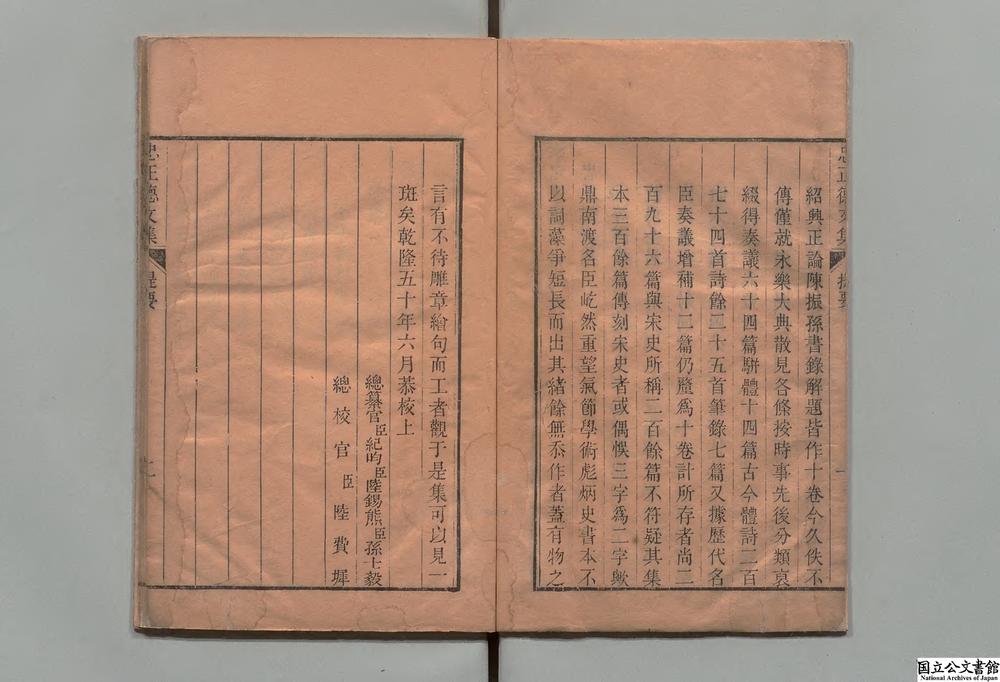 紹興正論陳振孫書錄解題皆作十卷今久佚不
傳僅就永樂大典散見各條按時事先後分類裒
綴得奏議六十四篇駢體十四篇古今體詩二百
七十四首詩餘二十五首筆錄七篇又據歷代名
臣奏議增補十二篇仍釐爲十卷計所存者尚二
百九十六篇與宋史所稱二百餘篇不符疑其集
本三百餘篇傳刻宋史者或偶悞三字爲二字歟
鼎南渡名臣屹然重望氣節學術彪炳史書本不
以詞藻爭短長而出其緒餘無忝作者蓋有物之
忠正德文集
提要
一
言有不待雕章繪句而工者觀于是集可以見一
斑矣乾隆五十年六月恭校上
總纂官臣紀昀臣陸錫熊臣孫士毅
總校官臣陸費墀
忠正德文集
提要
二
国立公文書館
National Archives of Japan